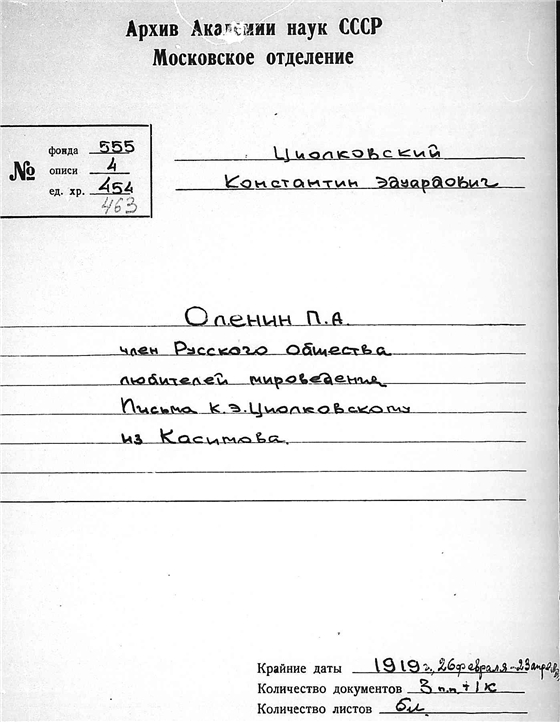 Архив Академии наук СССР
Московское отделение
№
фонда 555
описи 4
ед. хр. 454
463
Циолковский
Константин Эдуардович
Оленин П.А.
член Русского общества
любителей мироведения
Письма К.Э.Циолковскому
из Касимова.
Крайние даты 1919 г., 26 февраля - 23 апреля
Количество документов 3 п.п + 1 к
Количество листов 6 л